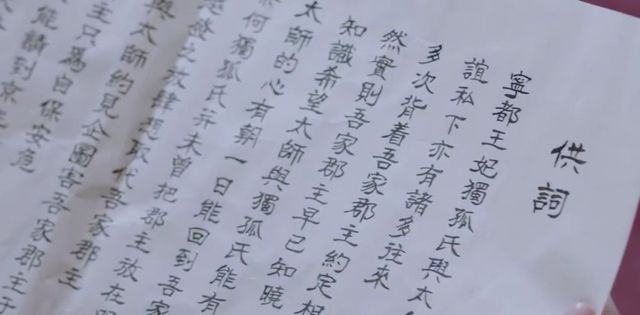 供詞
寧都王妃獨孤氏與太
誼私下亦有諸多往來
多次背着吾家郡主約定相
然實則吾家郡主早已知曉
知識希望太師與獨孤氏能有
太師的心有朝一日能回到吾家
何獨孤氏并未曾把郡主放在
之放肆想取代吾家郡主
與太師約見企圖害吾家郡主于
主只為自保安危
能請到京